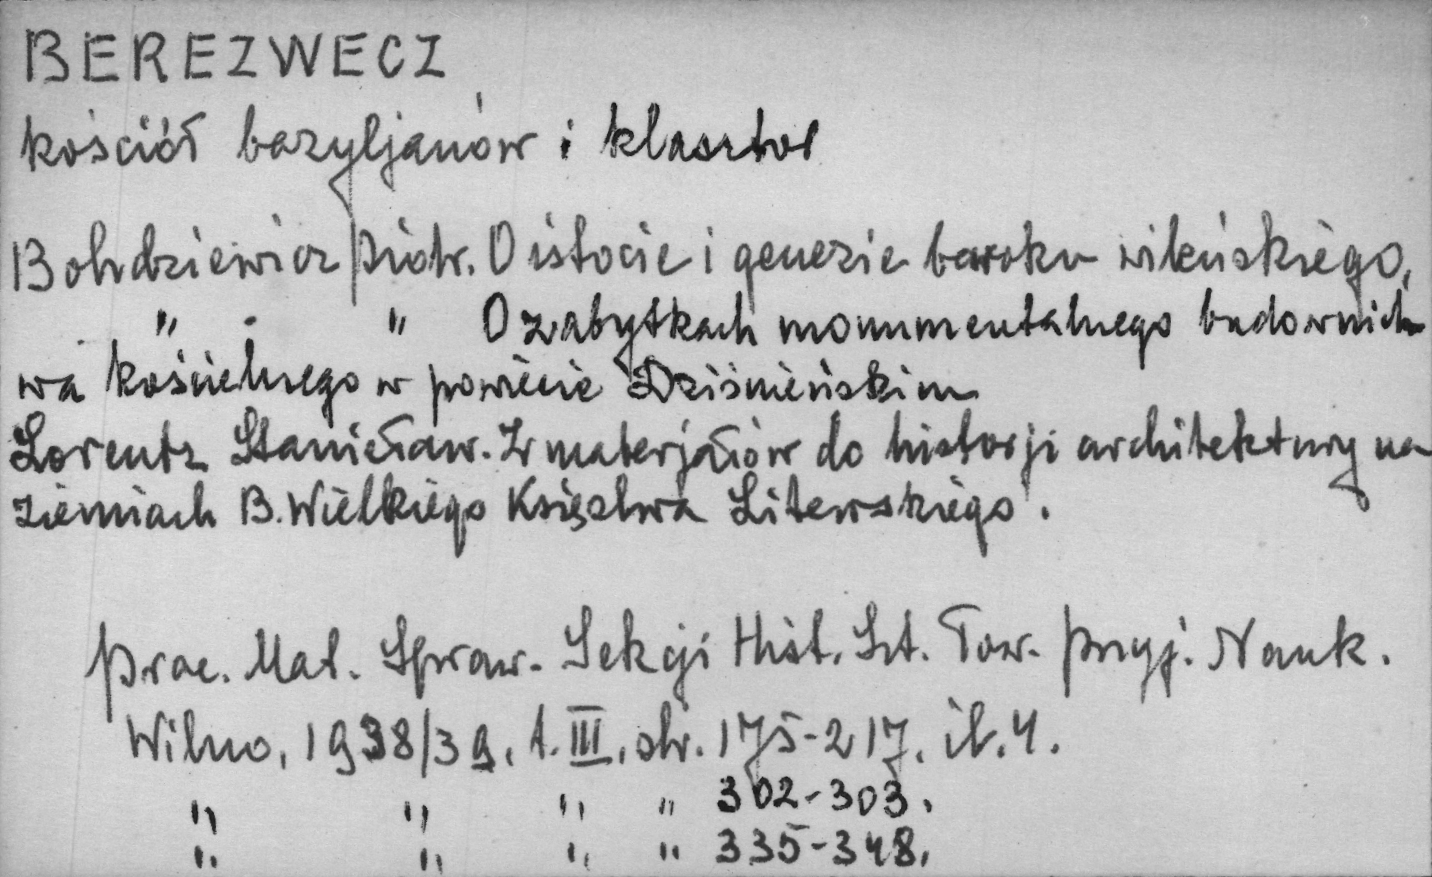 BEREZWECZ
kościół bazyljanów i klasztor
Bohdziewicz Piotr. O istocie i genezie baroku wileńskiego,
" " O zabytkach monumentalnego budownict
wa kościelnego w powiecie Dziśnieńskim
Lorentz Stanisław. Z materjałów do historji architektury na
ziemiach B. Wielkiego Księstwa Litewskiego.
Prac. Mat. Spraw. Sekcji Hist. Szt. Tow. Przyj. Nauk.
Wilno, 1938/39, t. III, str. 175-217, il. 4.
" " " " 302-303.
" " " " 335-348.